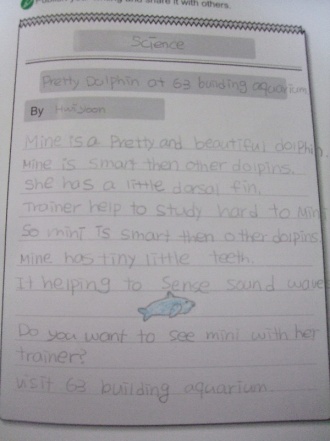 Publish your writing and share it with others.
Science
Pretty Dolphin at 63 building aquarium
By Hui joon
Mine is a Pretty and beautiful dolphin.
Mine is smart then other dolpins.
She has a little dorsal fin.
Trainer help to study hard to Mini
So mini is smart then other dolpins
Mine has tiny little teeth.
It helping to Sense sound wave
Do you want to see mini with her
trainer?
visit 63 building aquarium